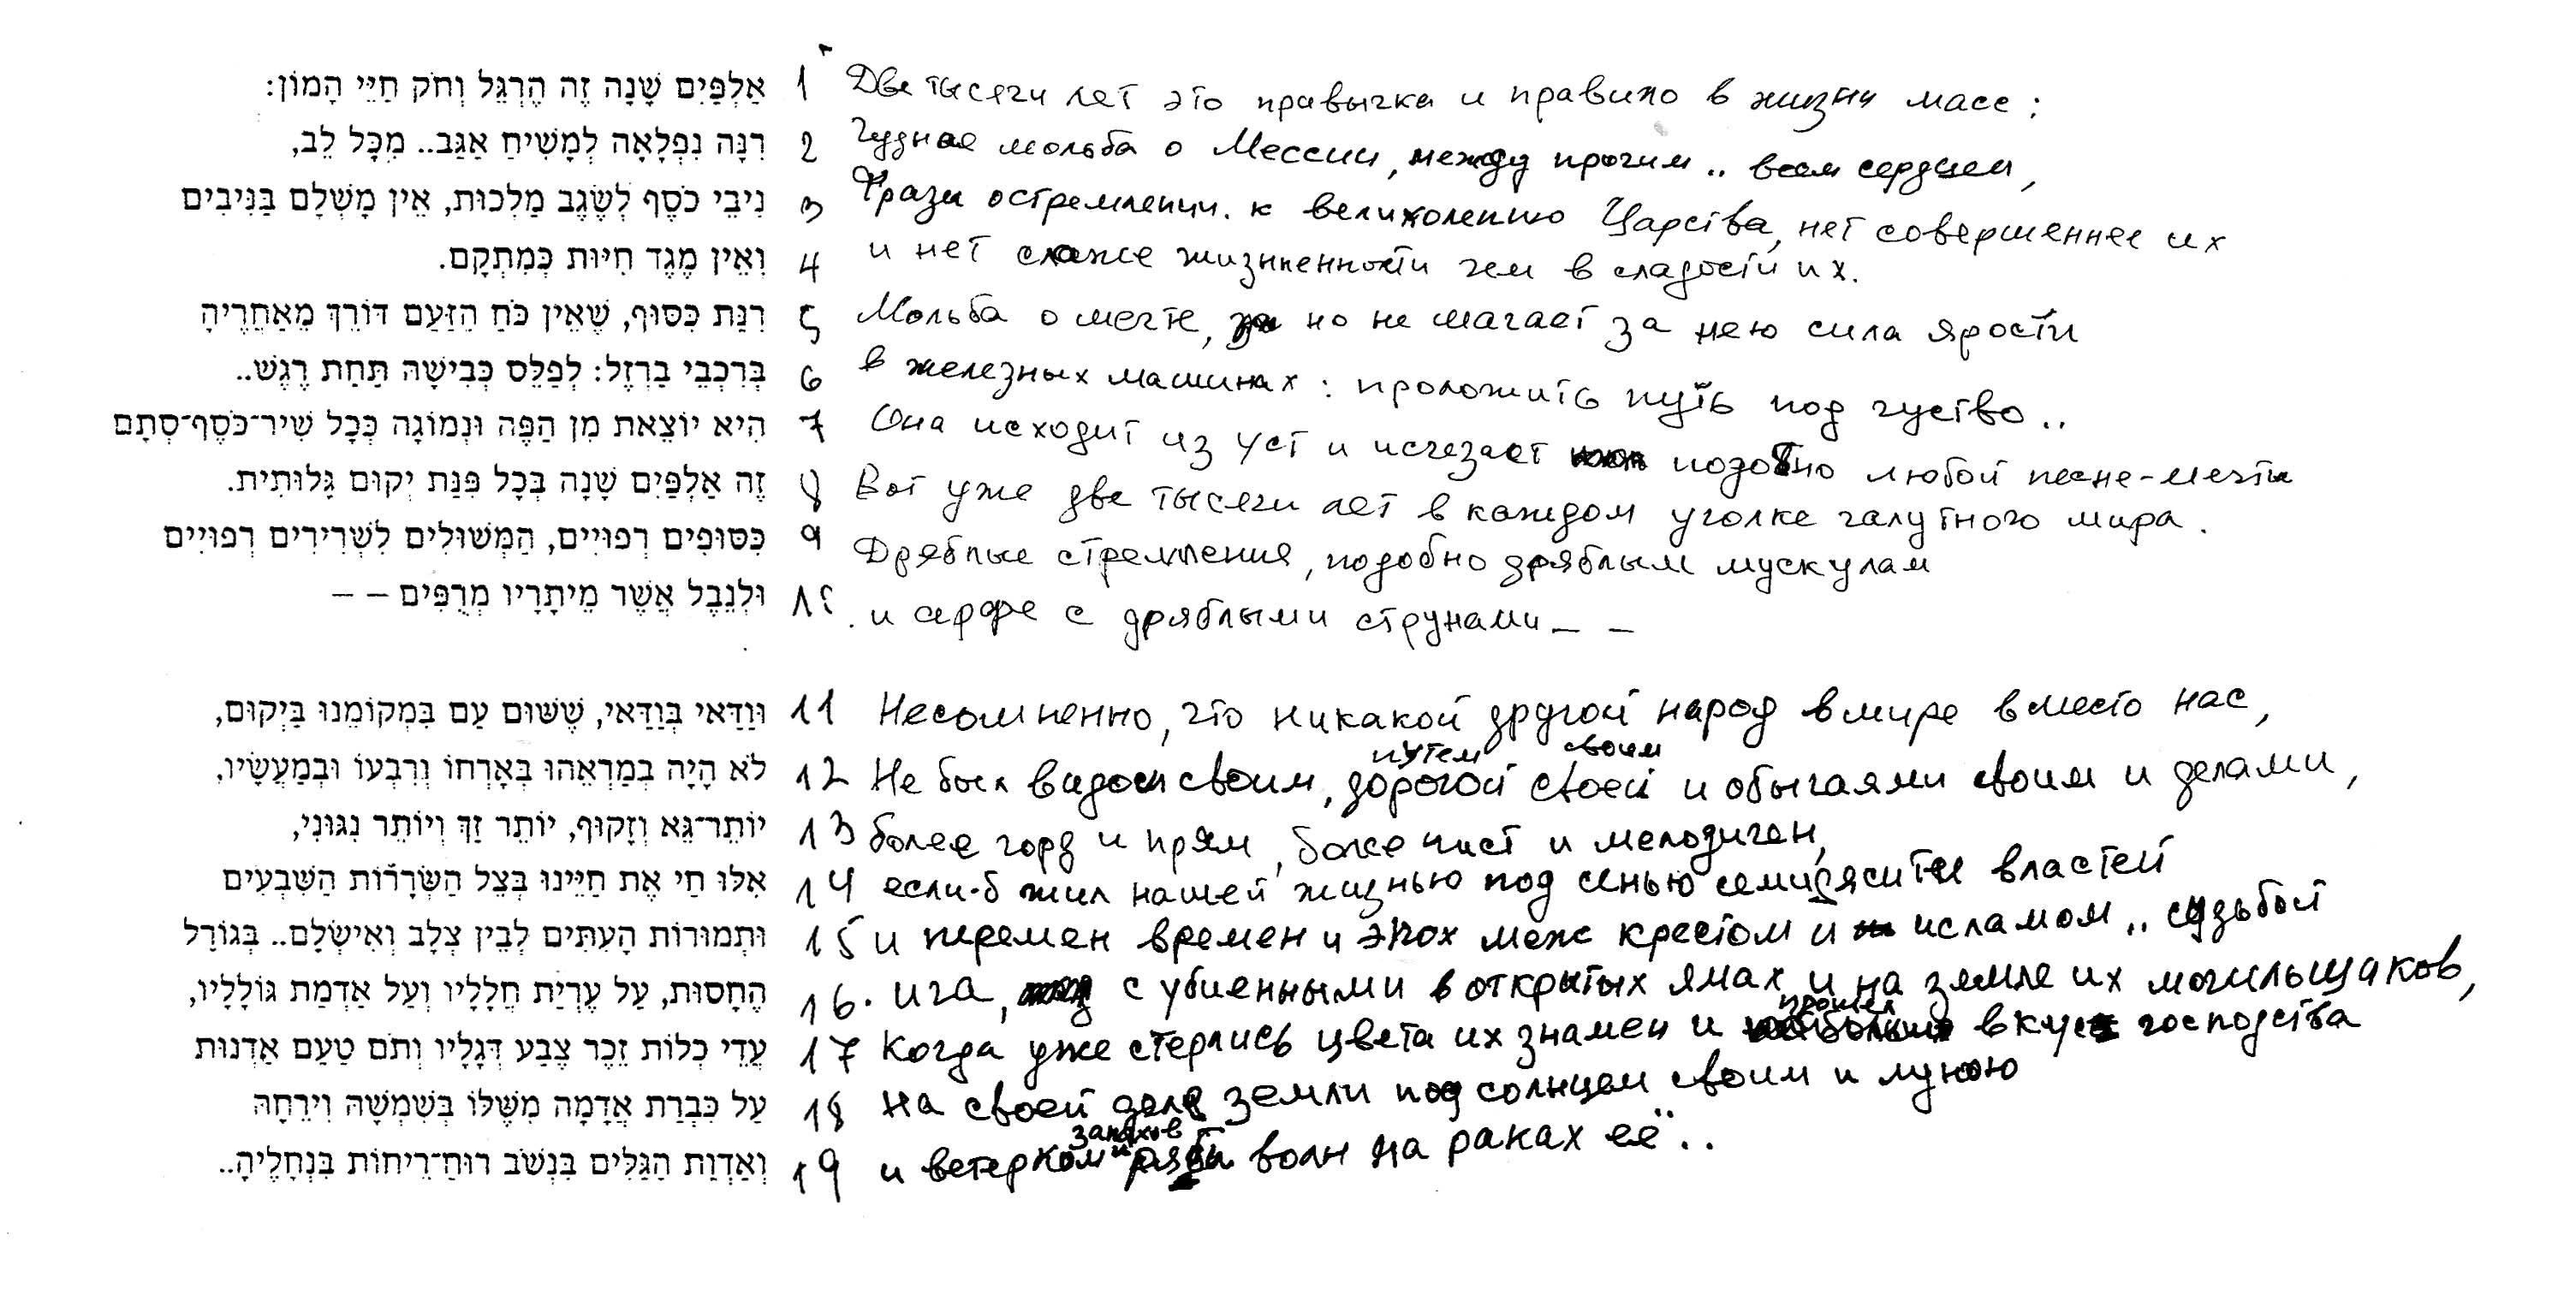 אַלְפַּיִם שָׁנָה זֶה הֶרְגֵּל וְחֹק חַיֵּי הָמוֹן: 1 Две тысячи лет это правычка и правило в жизни масс:
רִנָּה נִפְלָאָה לְמָשִׁיחַ אַגַּב.. מִכָּל לֵב, 2 Чудная мольба о Мессии, между прочим.. всем сердцем,
נִיבֵי כֹסֶף לְשֶׂגֶב מַלְכוּת, אֵין מֻשְׁלָם בַּנִּיבִים 3 Фразы остремлении. к великолепию Царства, нет совершеннее их
וְאֵין מֶגֶד חִיּוּת כְּמִתְקָם. 4 и нет слаже жизненности чем в сладости их.
רִנַּת כִּסּוּף, שֶׁאֵין כֹּחַ הַזַּעַם דּוֹרֵךְ מֵאַחֲרֶיהָ 5 Мольба о мечте, но не шагает за нею сила ярости
בְּרִכְבֵי בַרְזֶל: לְפַלֵּס כְּבִישָׁהּ תַּחַת רֶגֶשׁ.. 6 в железных машинах: проложить путь под чуство..
הִיא יוֹצֵאת מִן הַפֶּה וּנְמוֹגָה כְּכָל שִׁיר־כֹּסֶף־סְתָם 7 Она исходит из уст и исчезает подобно любой песне-мечты
זֶה אַלְפַּיִם שָׁנָה בְּכָל פִּנַּת יְקוּם גָּלוּתִית. 8 Вот уже две тысячи лет в каждом уголке галутного мира.
כִּסּוּפִים רְפוּיִים, הַמְּשׁוּלִים לִשְׁרִירִים רְפוּיִים 9 Дряблые стремления, подобно дряблым мускулам
וּלְנֵבֶל אֲשֶׁר מֵיתָרָיו מְרֻפִּים – – 10. и арфе с дряблыми струнами – –
וְוַדַּאי בְּוַדַּאי, שֶׁשּׁוּם עַם בִּמְקוֹמֵנוּ בַּיְקוּם, 11 Несомненно, что никакой другой народ в мире вместо нас,
путем своим
לֹא הָיָה בְמַרְאֵהוּ בְּאָרְחוֹ וְרִבְעוֹ וּבְמַעֲשָׂיו, 12 Не был видом своим, дорогой своей и обычаями своим и делами,
יוֹתֵר־גֵּא וְזָקוּף, יוֹתֵר זַךְ וְיוֹתֵר נִגּוּנִי, 13 более горд и прям, более чист и мелодичен,
אִלּוּ חַי אֶת חַיֵּינוּ בְּצֵל הַשְּׂרָרוֹת הַשִּׁבְעִים 14 если-б жил нашей жизнью под сенью властей
וּתְמוּרוֹת הָעִתִּים לְבֵין צְלָב וְאִישְׂלָם.. בְּגוֹרַל 15 и перемен времен и эпох меж крестом и исламом.. судьбой
הֶחָסוּת, עַל עֶרְיַת חֲלָלָיו וְעַל אַדְמַת גּוֹלָלָיו, 16. ига, с убиенными в открытых ямах и на земле их могильщаков,
прошел
עֲדֵי כְלוֹת זֵכֶר צֶבַע דְּגָלָיו וְתֹם טַעַם אַדְנוּת 17 Когда уже стерлись цвета их знамен и вкус господства
עַל כִּבְרַת אֲדָמָה מִשֶּׁלּוֹ בְּשִׁמְשָׁהּ וִירֵחָהּ 18 На своей земли под солнцем своим и луною
запахов
וְאַדְוַת הַגַּלִּים בִּנְשֹׁב רוּחַ־רֵיחוֹת בִּנְחָלֶיהָ.. 19 и ветерком и ряби волн на раках её..